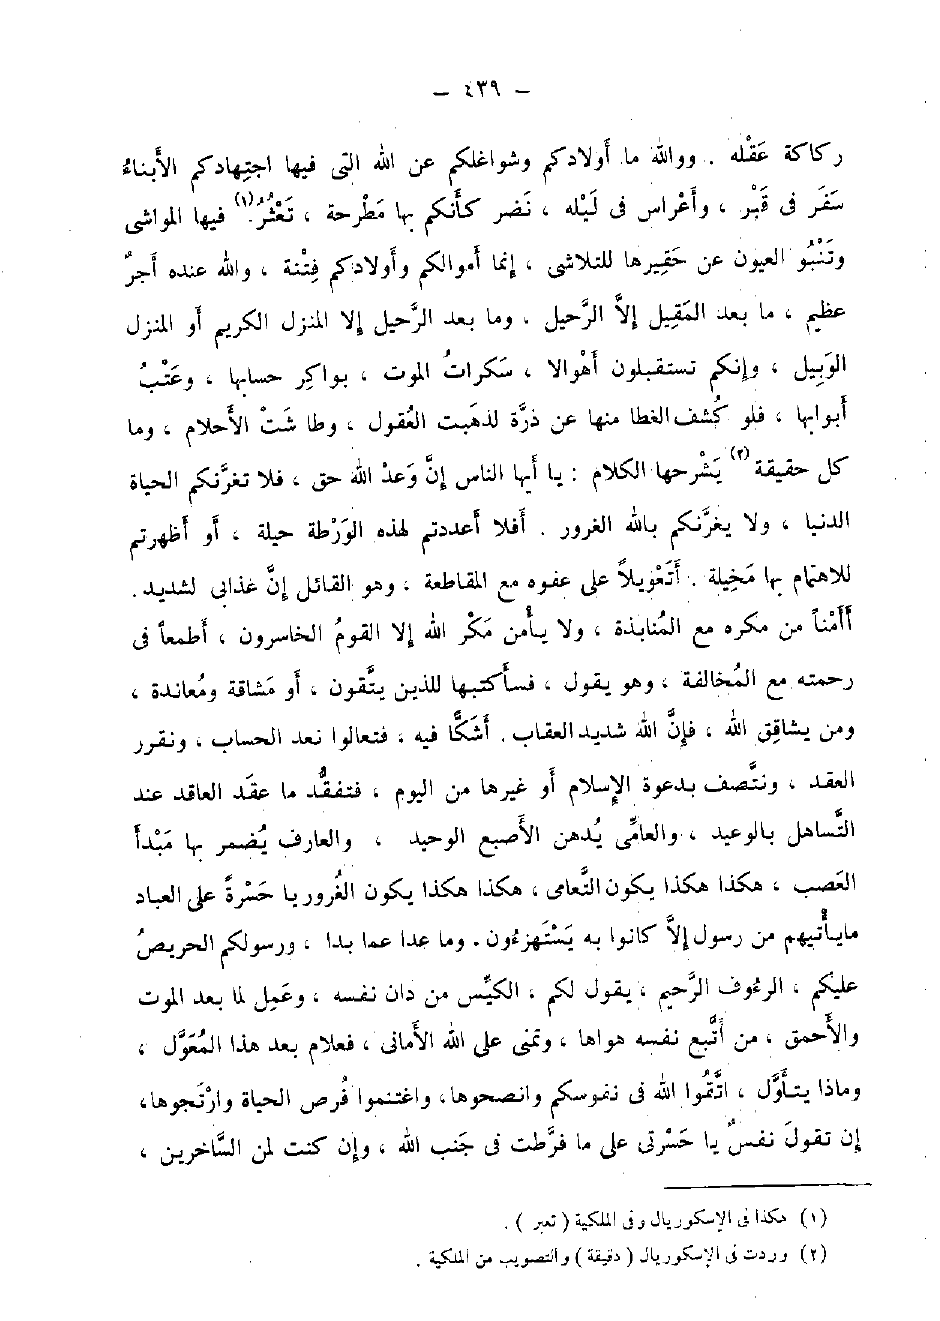 – ٤٣٩ –
ركاكة عَقْله . ووالله ما أولادكم وشواغلكم عن الله التى فيها اجتهادكم الأبناءُ
سَفَر فى قَبْر ، وأعْراس فى لَيْله ، نَضر كأنكم بها مَطْرحة ، تَعْثُرُ(١) فيها المواشى
وتَنْبُو العيون عن حَقِيرها للتلاشى ، إنما أموالكم وأولادكم فِتْنة ، والله عنده أجرٌ
عظيم ، ما بعد المَقِيل إلاَّ الرَّحيل ، وما بعد الرَّحيل إلا المنزل الكريم أو المنزل
الوَبِيل ، وإنكم تستقبلون أهْوالا ، سَكراتُ الموت ، بواكِر حسابها ، وعَتْبُ
أبوابها ، فلو كُشف الغطا منها عن ذرَّة لذهبت العُقول ، وطا شَتْ الأحلام ، وما
كل حقيقة(٢) يَشْرحها الكلام : يا أيها الناس إنَّ وَعدْ الله حق ، فلا تغرَّنكم الحياة
الدنيا ، ولا يغرَّنكم بالله الغرور . أفلا أعددتم لهذه الوَرْطة حيلة ، أو أظهرتم
للاهتمام بها مَخِيلة . أتَعْويلاً على عفوه مع المقاطعة ، وهو القائل إنَّ عَذابى لشديد .
أأمْناً من مكره مع المُنابذة ، ولا يأمن مَكْر الله إلا القومُ الخاسرون ، أطمعاً فى
رحمته مع المُخالفة ، وهو يقول ، فسأكتبها للذين يتَّقون ، أو مَشاقة ومُعاندة ،
ومن يشاقِق الله ، فإنَّ الله شديد العقاب . أشَكًّا فيه ، فتعالوا نعد الحساب ، ونقرر
العقد ، ونتَّصف بدعوة الإسلام أو غيرها من اليوم ، فتفقُّد ما عقَد العاقد عند
التَّساهل بالوعيد ، والعامِّى يُدهن الأصبع الوحيد ، والعارف يُضمر بها مَبْدأ
العَصب ، هكذا هكذا يكون التَّعامى ، هكذا هكذا يكون الغُرور يا حَسْرةً على العباد
مايأتيهم من رسول إلاَّ كانوا به يَسْتَهزءون . وما عدا عما بدا ، ورسولكم الحريصُ
عليكم ، الرءوف الرَّحيم ، يقول لكم ، الكيِّس من دان نفسه ، وعَمِل لما بعد الموت
والأحمق ، من أتَّبع نفسه هواها ، وتمنى على الله الأمانى ، فعلام بعد هذا المُعَوَّل ،
وماذا يتأوَّل ، اتَّقُوا الله فى نفوسكم وانصحوها، واغتنموا فُرص الحياة وارْتَجوها،
إن تقولَ نفسٌ يا حَسْرتى على ما فرَّطت فى جَنب الله ، وإن كنت لمن السَّاخرين ،
(١) هكذا فى الإسكوريال وفى الملكية ( تعبر ) .
(٢) وردت فى الإسكوريال ( دقيقة ) والتصويب من الملكية .